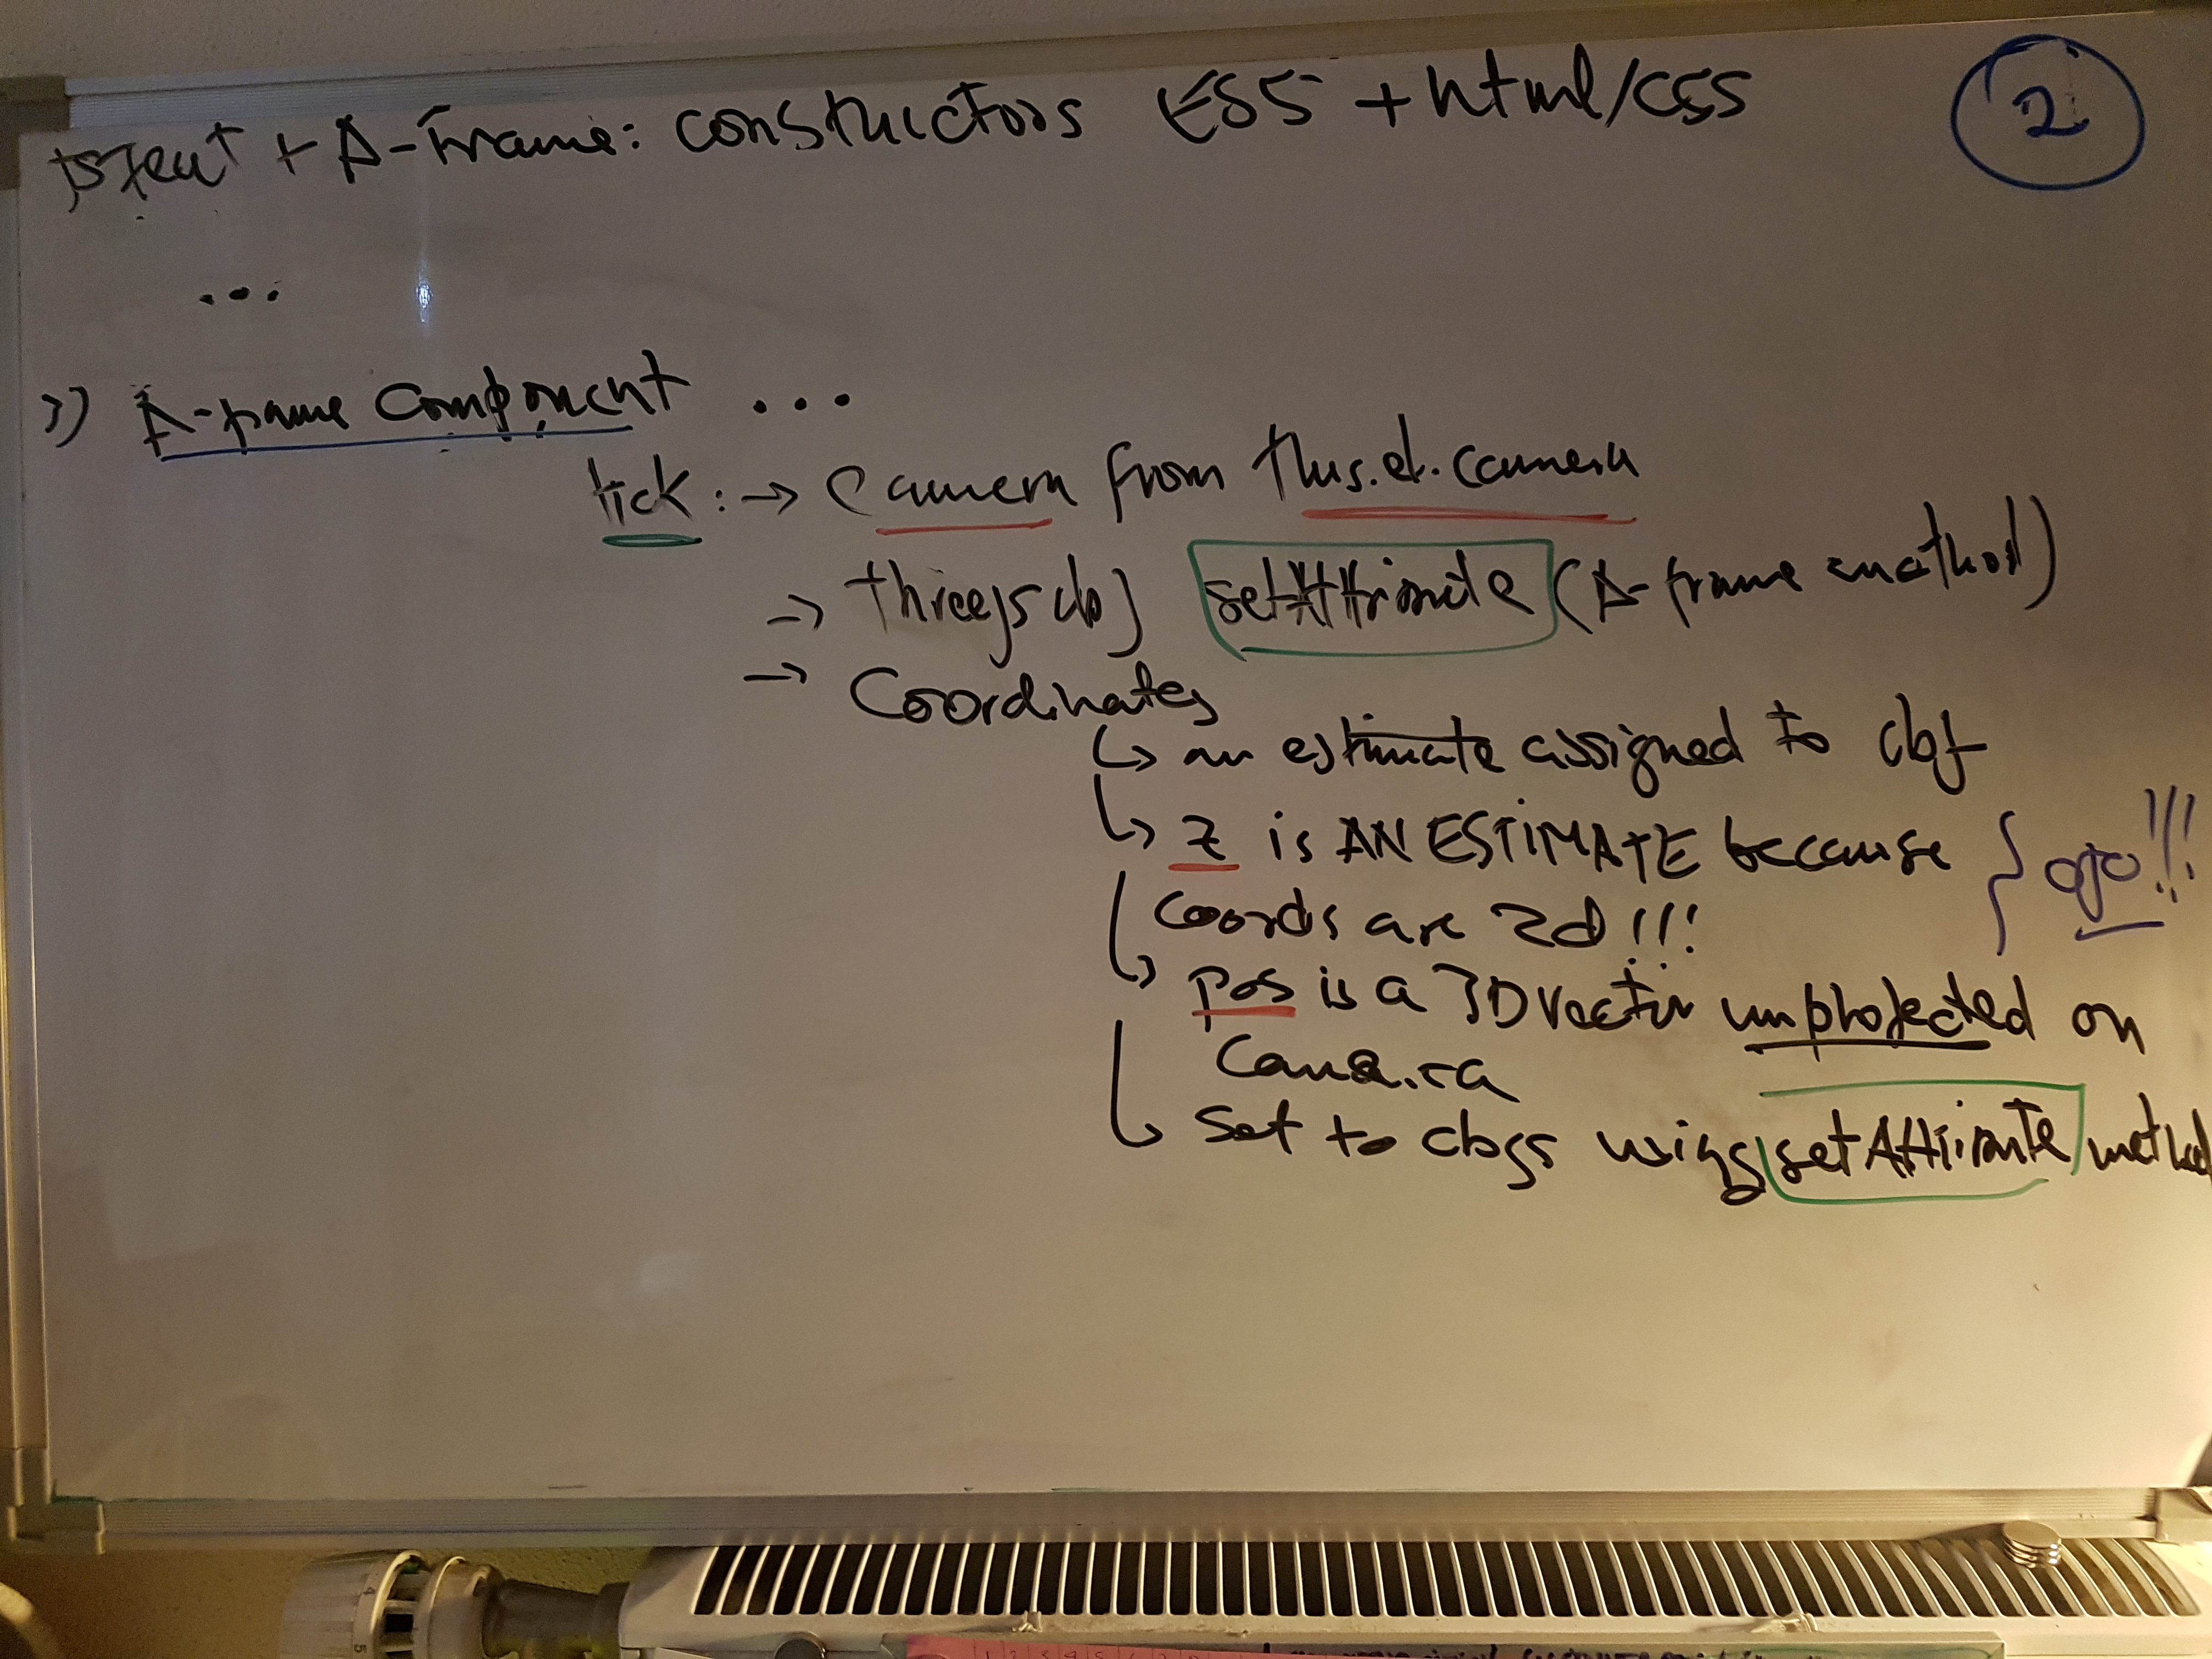 jsfeat + A-Frame: constructors ES5 + html/css
2
...
3) A-frame component ...
tick: → Camera from this.el.camera
→ threejs obj setAttribute (A-frame method)
→ Coordinates
↳ an estimate assigned to obj
↳ z is AN ESTIMATE because
coords are 2d!!!
} ojo!!!
↳ pos is a 3D vector unprojected on
camera
↳ set to objs using setAttribute method